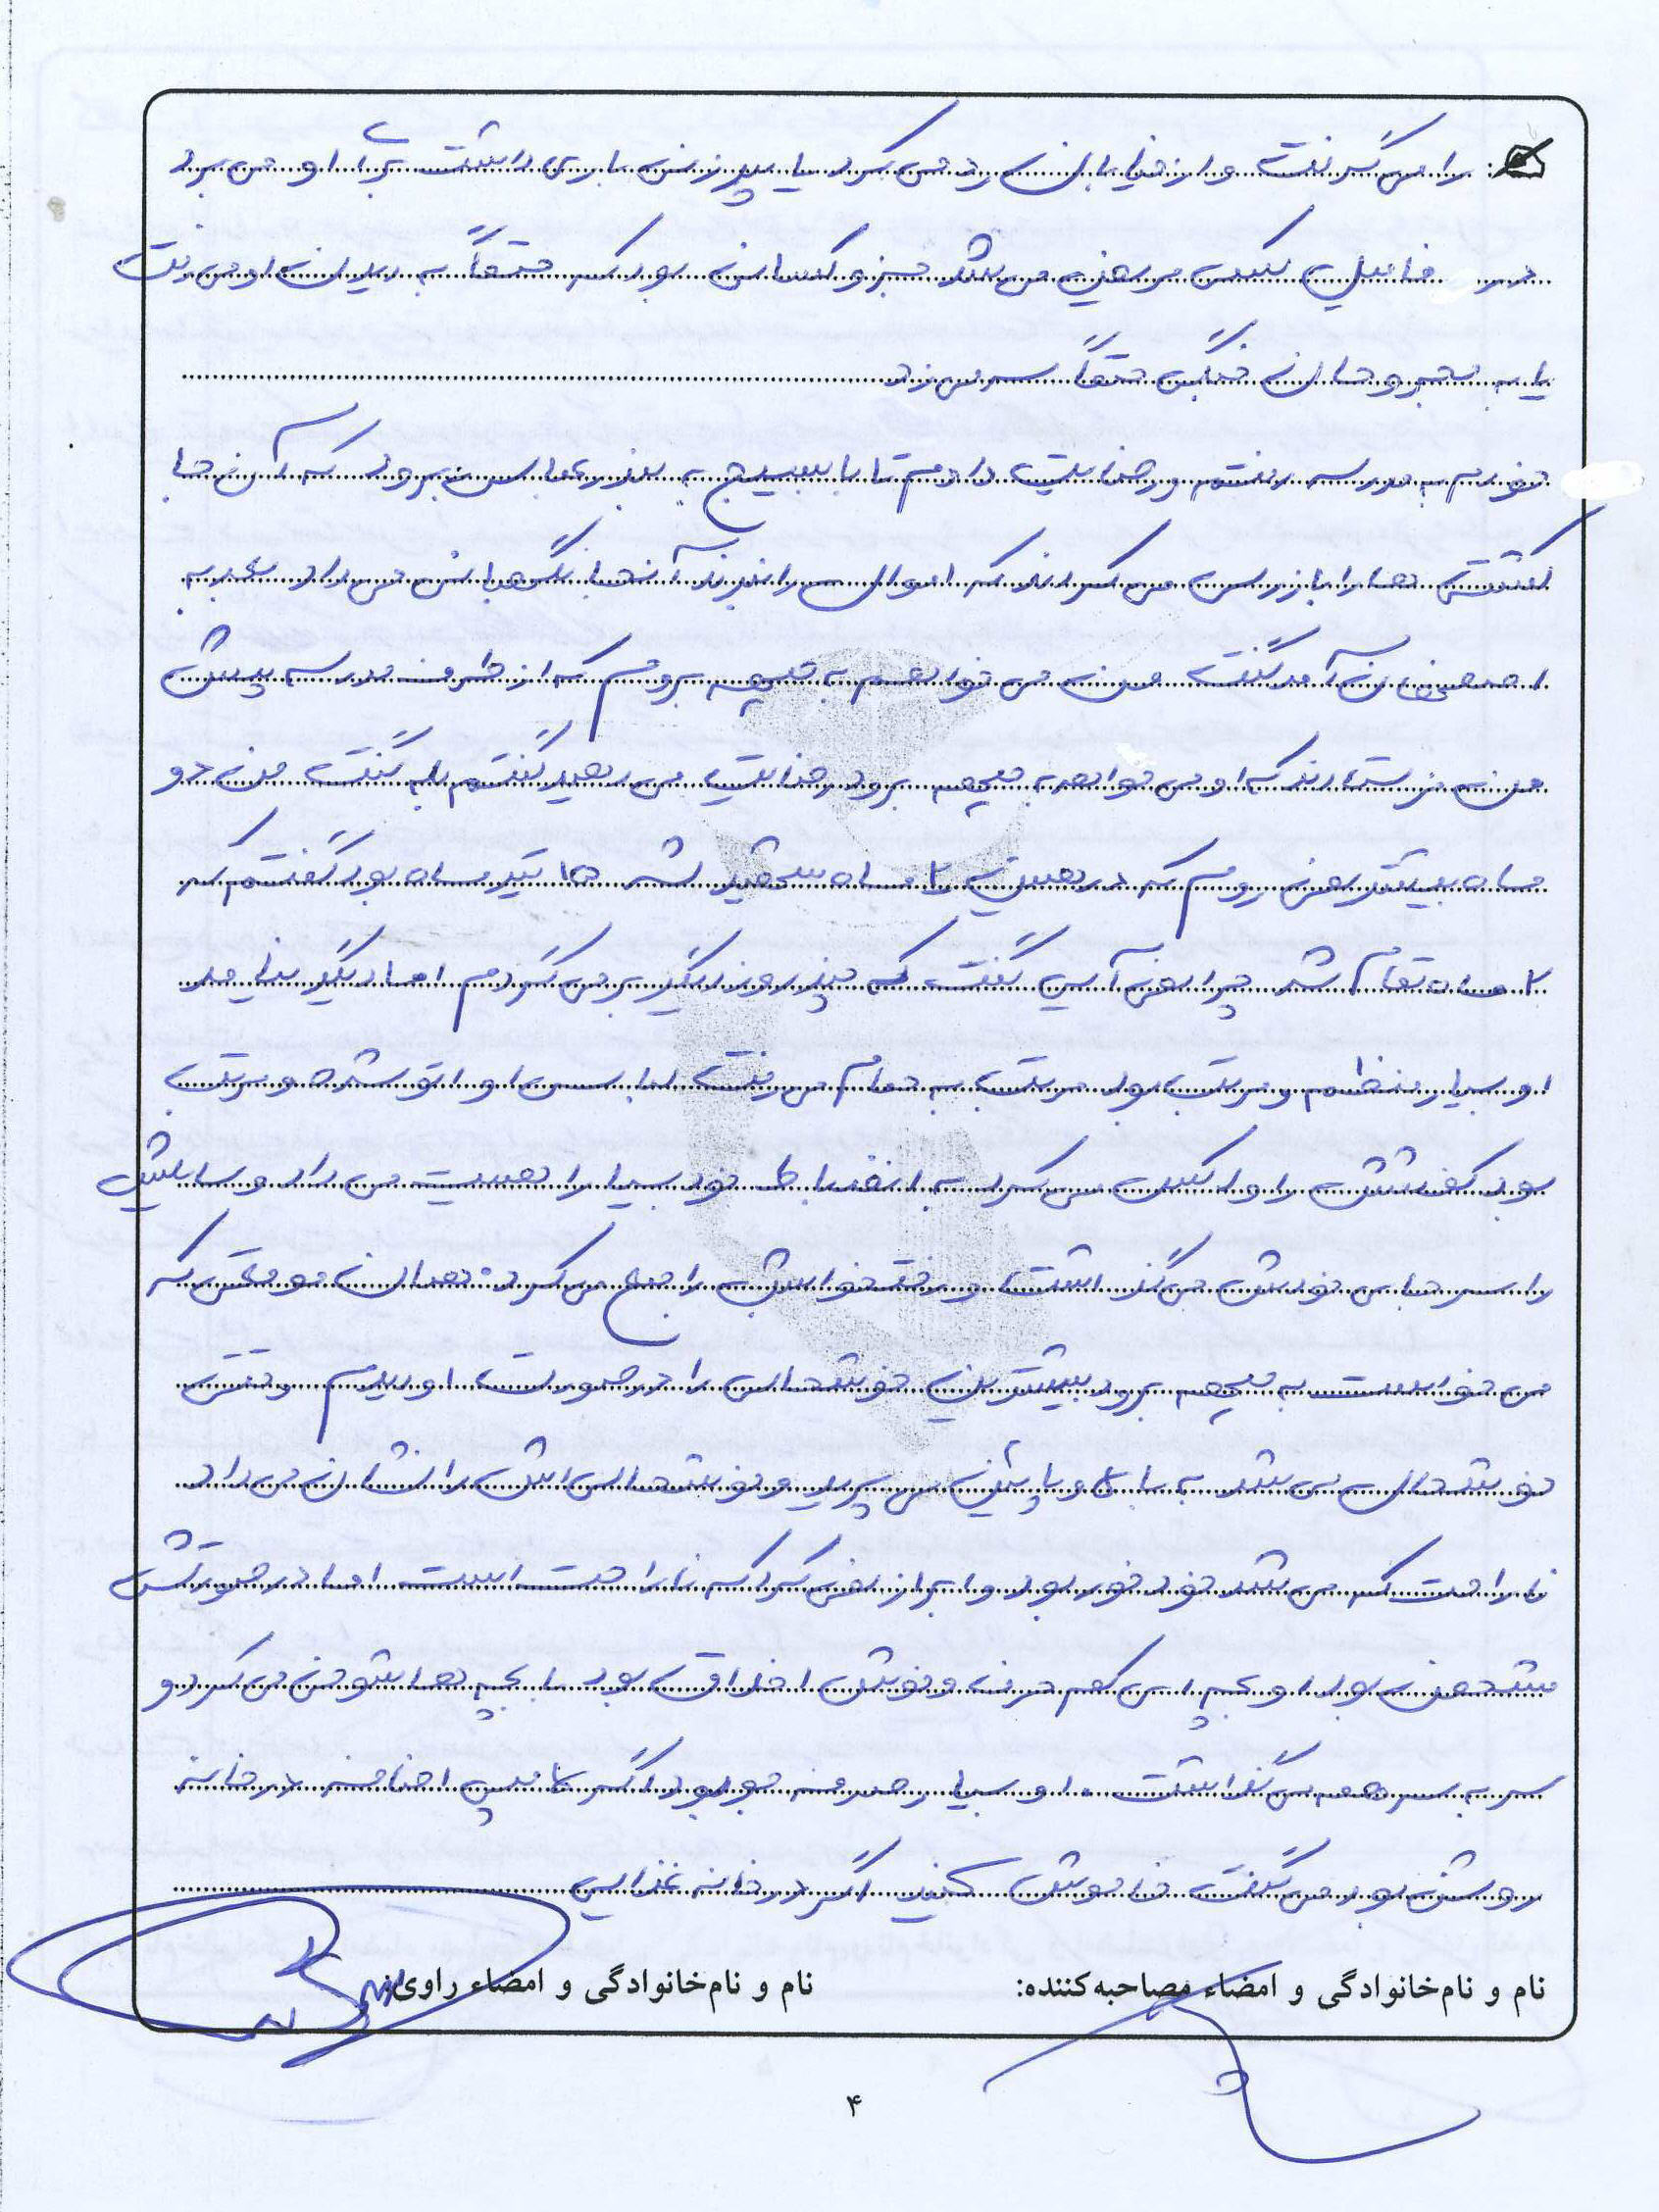 را می گرفت و از خیابان رد می کرد یا پیرزنی باری داشت برا او می برد
در فامیل کسی مریض می شد جزو کسانی بود که حتماً به دیدن او می رفت
یا به مجروحان جنگی حتماً سر می زد
خودم به مدرسه رفتم و رضایت دادم تا با بسیج به بندر عباس برود که آن جا
کشتی ها را بازرسی می کردند که اموال را نبرند آنجا نگهبانی می داد بعد به
اصفهان آمد گفت من می خواهم به جبهه بروم که از طرف مدرسه پیش
من فرستادند که او می خواهد به جبهه برود رضایت می دهید گفتم بله گفت من دو
ماه بیشتر نمی روم که در همین ۲ ماه شهید شد ۱۵ تیر ماه بود گفتم که
۲ ماه تمام شد چرا نمی آیی گفت که چند روز دیگر بر می گردم اما دیگر نیامد
او بسیار منظم و مرتب بود مرتب به حمام می رفت لباس او اتو شده و مرتب
بود کفشش را واکس می کرد به انضباط خود بسیار اهمیت می داد وسایلش
را سر جای خودش می گذاشت و رختخوابش را جمع می کرد همان موقعی که
می خواست به جبهه برود بیشترین خوشحالی را در صورت او دیدم وقتی
خوشحال می شد به بالا و پایین می پرید و خوشحالی اش را نشان می داد
ناراحت که می شد خود خور بود و ابراز نمی کرد که ناراحت است اما در صورتش
مشخص بود او بچه ای کم حرف و خوش اخلاق بود با بچه ها شوخی می کرد و
سر به سر همه می گذاشت . او بسیار صرفه جو بود اگر لامپ اضافه در خانه
روشن بود می گفت خاموش کنید اگر در خانه غذایی
نام و نام‌خانوادگی و امضاء مصاحبه‌کننده: نام و نام‌خانوادگی و امضاء راوی:
۴